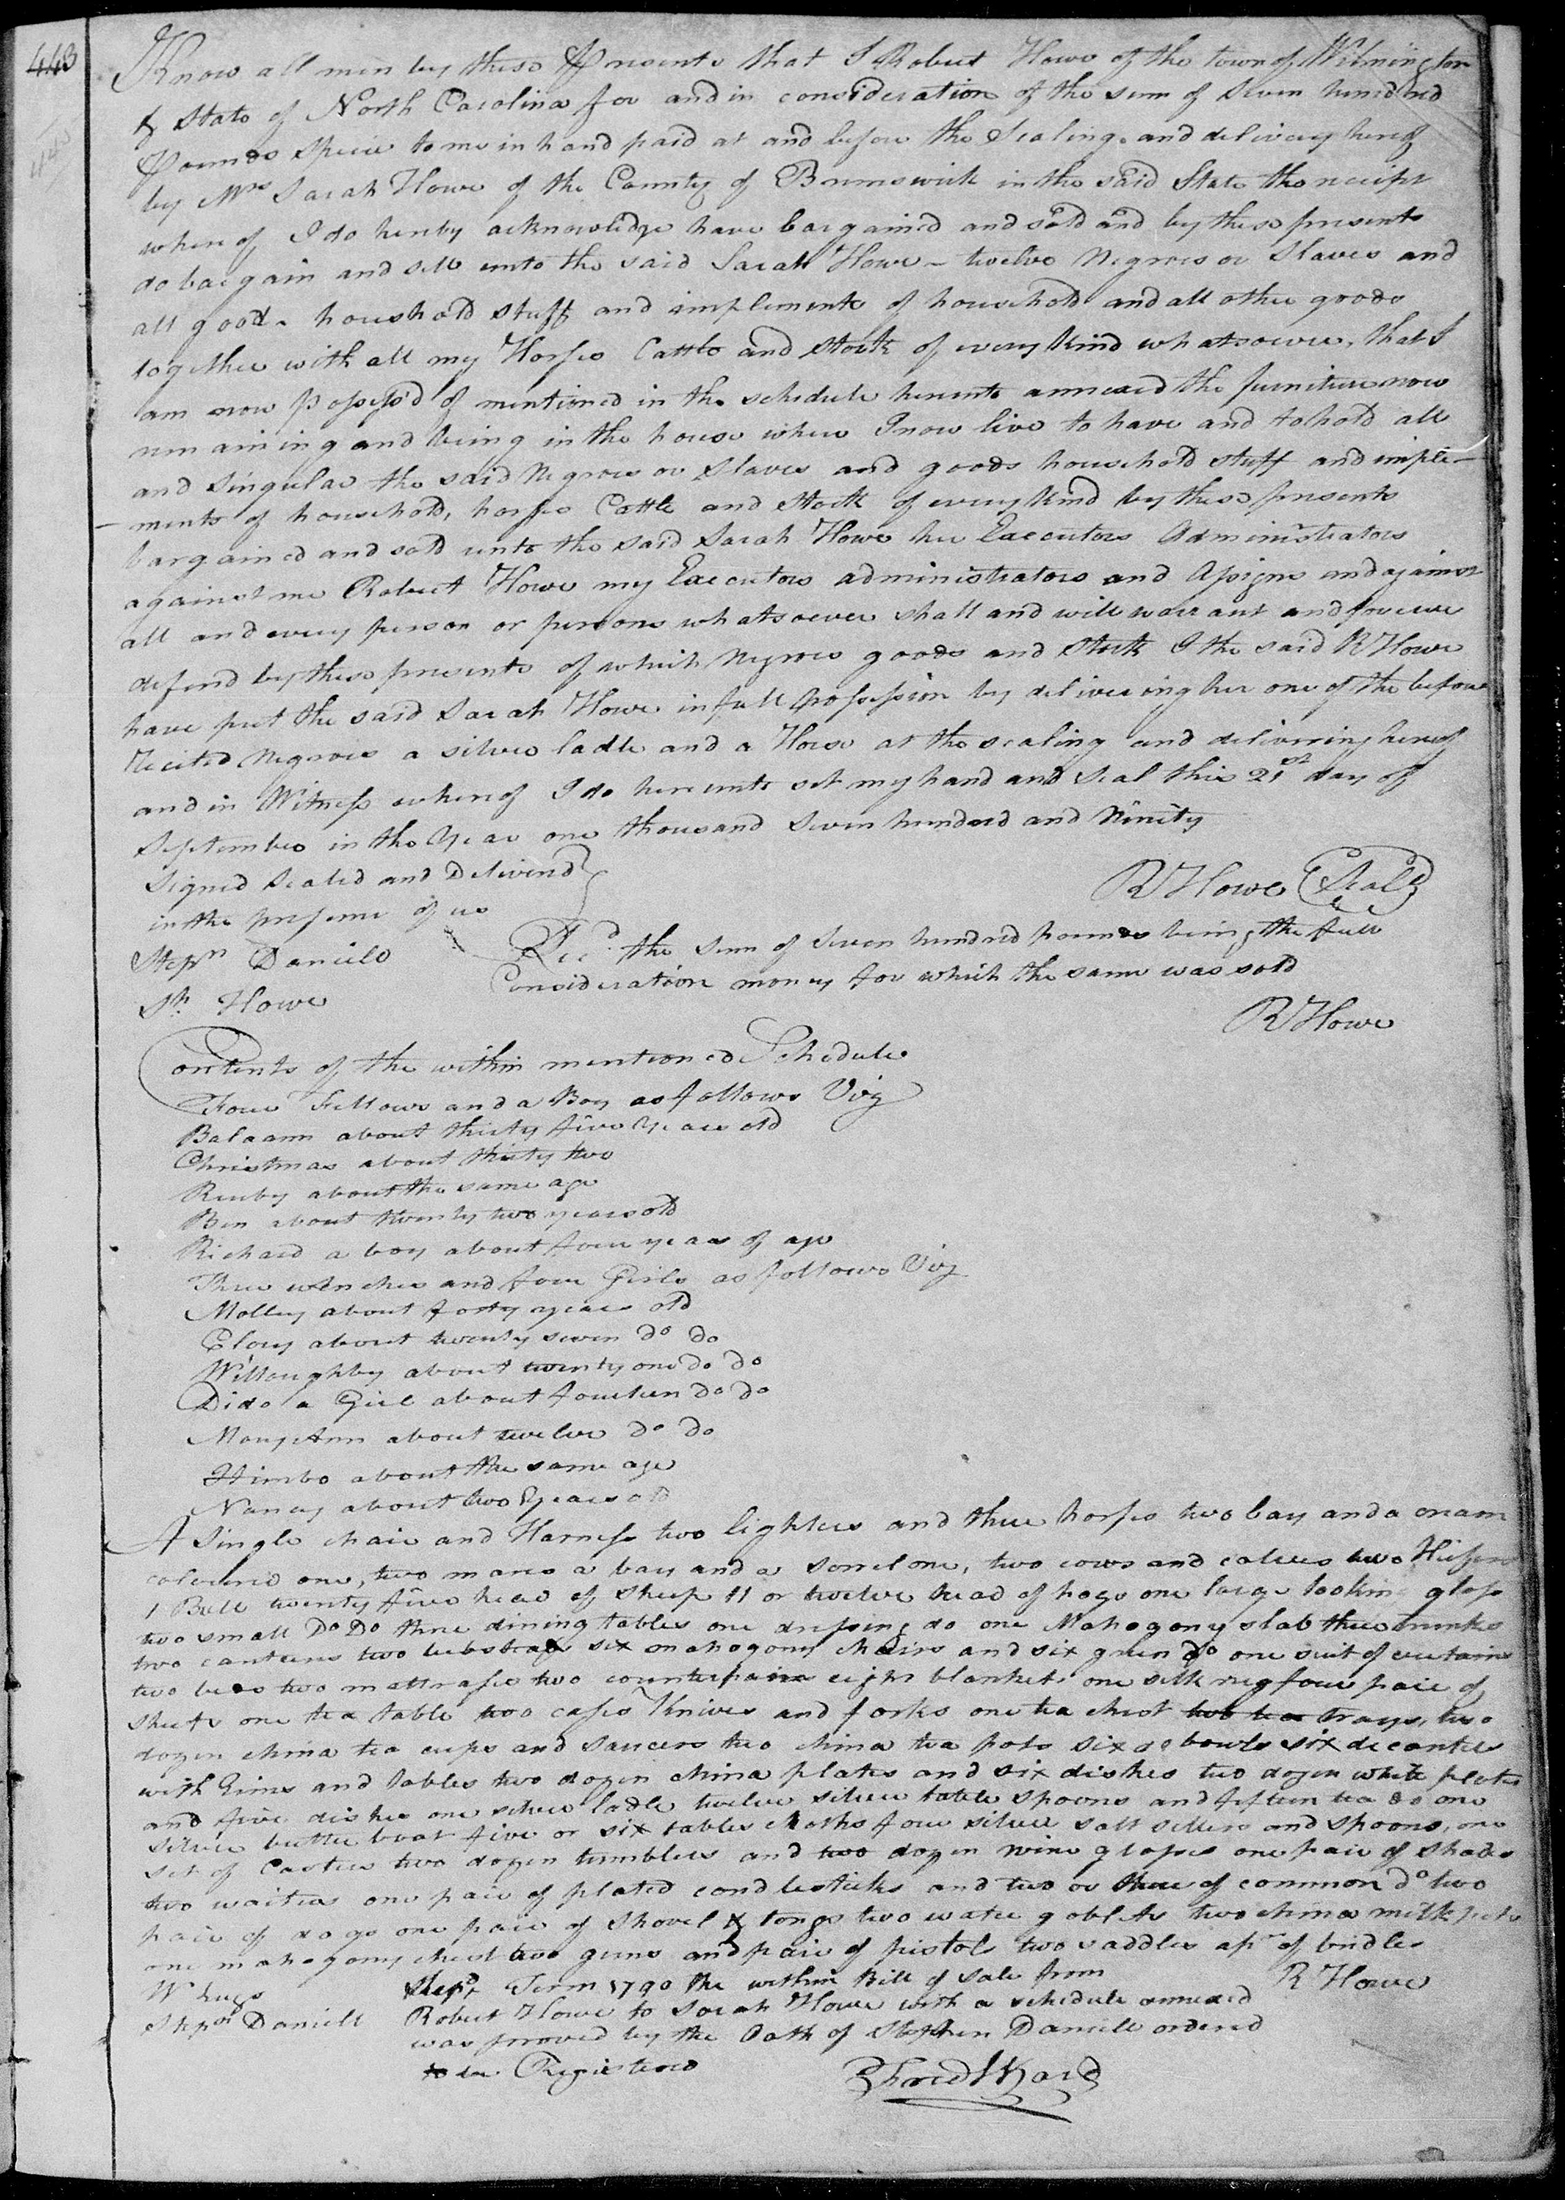 443
Know all men by these Presents that I Robert Howe of the town of Wilmington
& State of North Carolina for and in consideration of the sum of Seven hundred
Pounds specie to me in hand paid at and before the Sealing and delivery hereof
by Mrs Sarah Howe of the County of Brunswick in the said State the receipt
whereof I do hereby acknowledge have bargained and sold and by these presents
do bargain and sell unto the said Sarah Howe - twelve Negroes or Slaves and
all goods houshold stuff and implements of household and all other goods
together with all my Horses Cattle and stock of every kind whatsoever, that I
am now possess'd of mentioned in the schedule hereunto annexed the furniture now
remaining and being in the house where I now live to have and to hold all
and singular the said Negroes or Slaves and goods household stuff and imple-
-ments of household, horses Cattle and Stock of every kind by these presents
bargained and sold unto the said Sarah Howe her Executors Administrators
against me Robert Howe my Executors administrators and Assigns and against
all and every person or persons whatsoever shall and will warrant and forever
defend by these presents of which Negroes goods and Stock I the said R Howe
have put the said Sarah Howe in full possession by delivering her one of the before
recited Negroes a silver ladle and a Horse at the sealing and delivering hereof
and in Witness whereof I do hereunto set my hand and Seal this 21st day of
September in the Year one thousand Seven hundred and Ninety
Signed Sealed and Deliverd
in the presence of us
R Howe Seal
Stepn Daniels
Sh Howe
Recd the sum of Seven hundred pounds being the full
Consideration money for which the same was sold
R Howe
Contents of the within mentioned Schedule
Four Fellows and a Boy as follows Viz
Balaam about thirty five Years old
Christmas about thirty two
Reuby about the same age
Ben about twenty two years old
Richard a boy about four years of age
Three wenches and four Girls as follows Viz
Molley about forty years old
Clouy about twenty seven do do
Willoughby about twenty one do do
Dido a Girl about fourteen do do
Mary Ann about twelve do do
Himbo about the same age
Nancy about two Years old
A Single chair and Harness two lighters and three horses two bay and a cream
coloured one, two mares a bay and a sorrel one, two cows and calves two Heifers
1 Bull twenty five head of sheep 11 or twelve head of hogs one large looking glass
two small Do Do three dining tables one dressing do one Mahogony slab three trunks
two canteens two six mahogony chairs and six green do one suit of curtains
two beds two mattrasses two counterpains eight blankets one silk rug four pair of
sheets one tea table two cases Knives and forks one tea chest two tea trays, two
dozen china tea cups and saucers two china tea pots six do bowls six decanters
with and two dozen china plates and six dishes two dozen white plates
and five dishes one silver ladle twelve silver table spoons and fifteen tea do one
silver butter boat five or six tables cloths four silver salt sellers and spoons, one
set of Castors two dozen tumblers and two dozen wine glasses one pair of shades
two waiters one pair of plated candlesticks and two or three of common do two
pair of dogs one pair of shovel & tongs two water goblets two china milk pots
one mahogony chest two guns and pair of pistols two saddles a pr of bridles
R Howe
Stepn Daniell
Sept Term 1790 the within Bill of Sale from
Robert Howe to Sarah Howe with a schedule annexed
was proved by the Oath of Stephen Daniell ordered
to be Registered